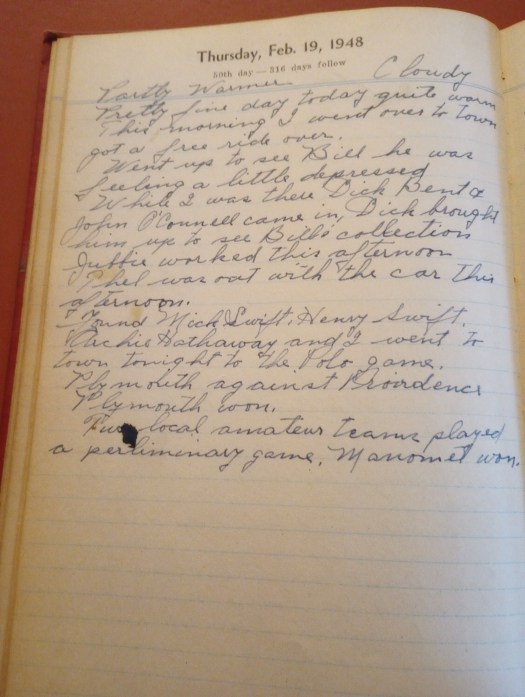 Thursday, Feb. 19, 1948
50th day — 316 days follow
Partly Warmer Cloudy
Pretty fine day today quite warm
This morning I went over to town
got a free ride over.
Went up to see Bill he was
feeling a little depressed
While I was there Dick Bent &
John O'Connell came in, Dick brought
him up to see Bill's collection
worked this afternoon
Phel was out with the car this
afternoon.
Found Mick Swift, Henry Swift,
Archie Hathaway and I went to
town tonight to the Polo game.
Plymouth against Providence
Plymouth won.
local amateur teams played
a perliminary game, Manomet won.